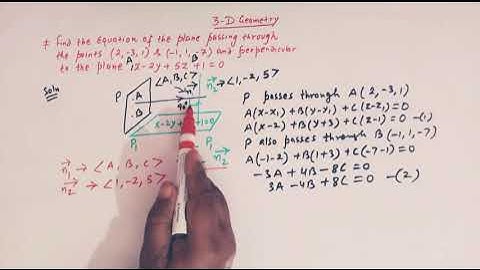 3-D Geometry
# Find the Equation of the plane passing through
the points (2,-3,1) & (-1,1,-7) and perpendicular
A B
to the plane x-2y+5z+1=0
Soln
<A,B,C>
n₂→<1,-2,5>
P
A
B
n₁
90°
x-2y+
+1=0
P₁
P₁
n₂
n₁ → <A,B,C>
n₂ → <1,-2,5>
P passes through A(2,-3,1)
A(x-x₁)+B(y-y₁)+C(z-z₁)=0
A(x-2)+B(y+3)+C(z-1)=0 -(1)
P also passes through B(-1,1,-7)
A(-1-2)+B(1+3)+C(-7-1)=0
-3A+4B-8C=0
3A-4B+8C=0 -(2)